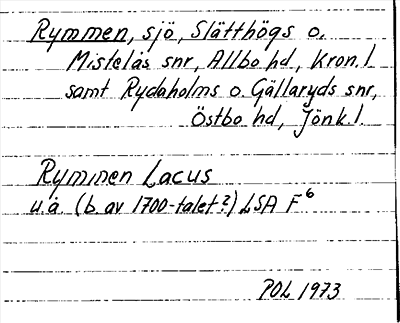 Rymmen, sjö, Slätthögs o.
Mistelås snr, Allbo hd, Kron. l
samt Rydaholms o. Gällaryds snr,
Östbo hd, Jönk l.
Rymmen Lacus
u.å. (b. av 1700-talet?) LSA F 6
POL 1973